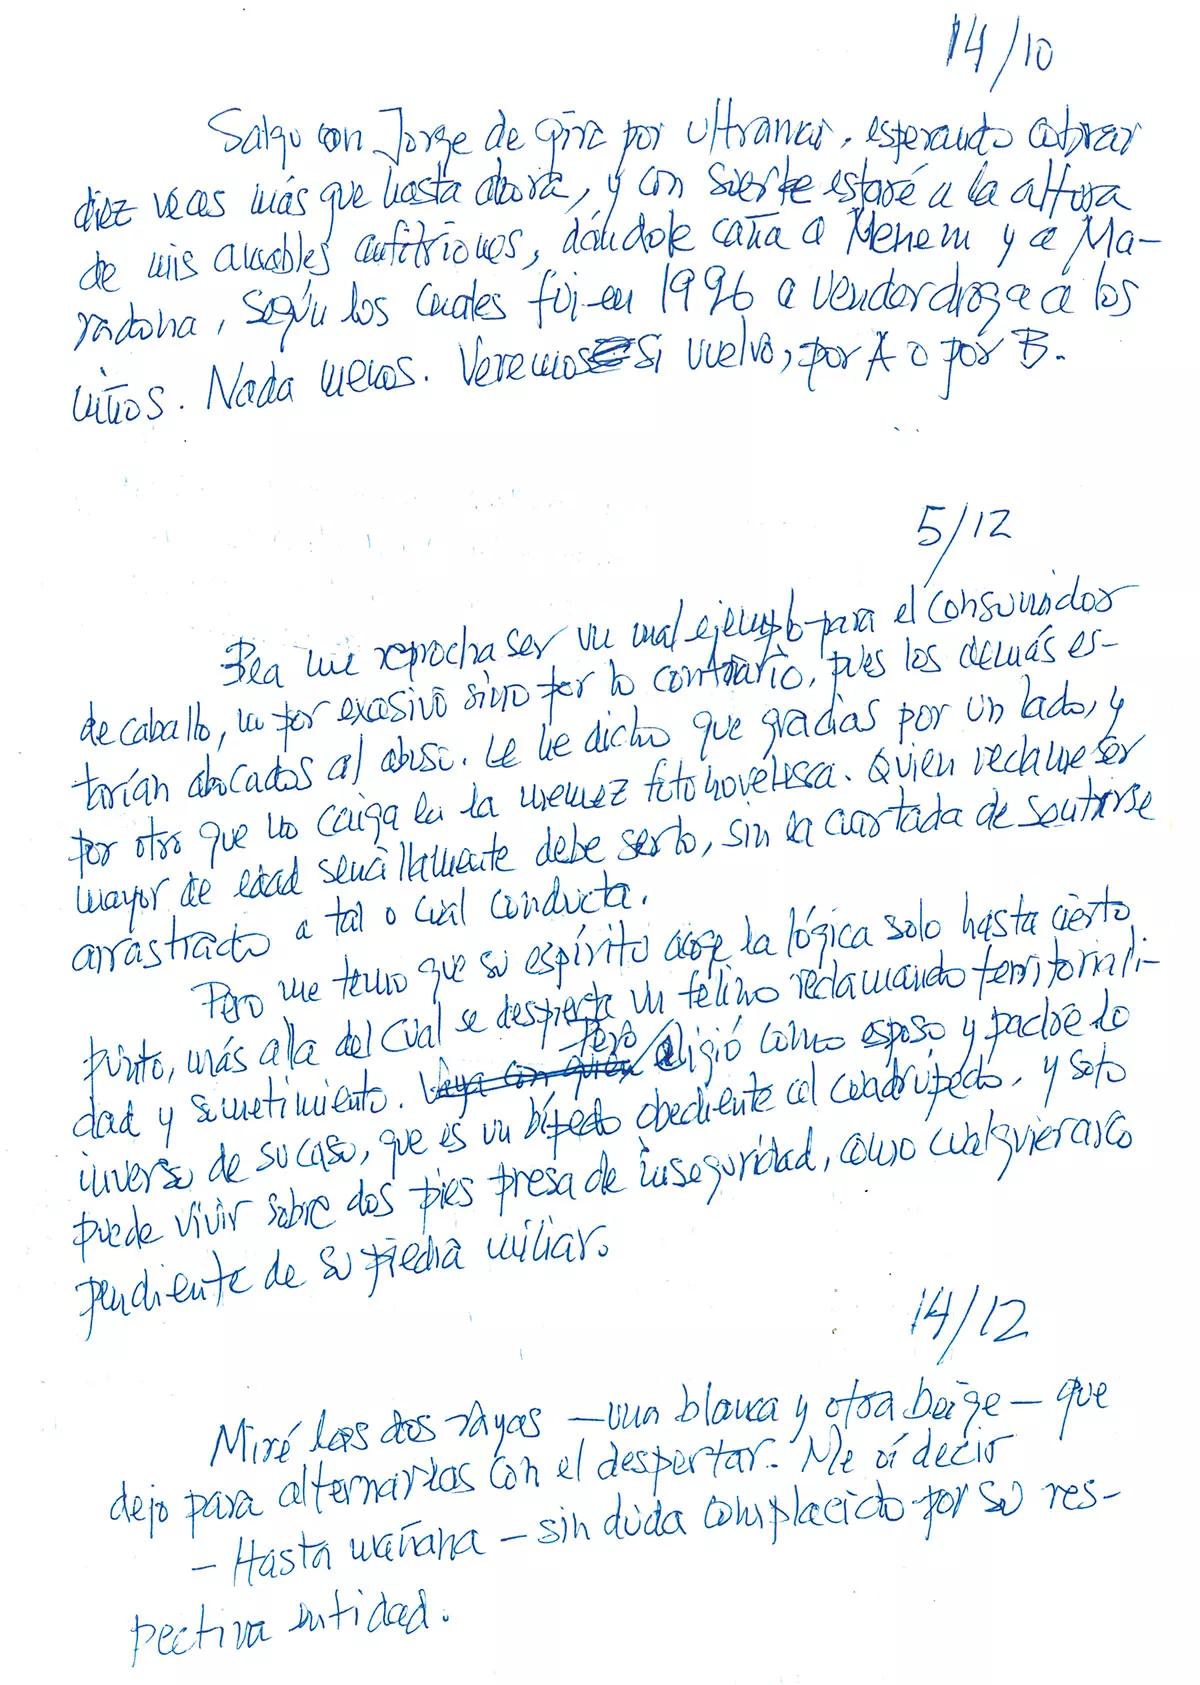 14/10
Salgo con Jorge de gira por ultramar, esperando cobrar
diez veces más que hasta ahora, y con suerte estaré a la altura
de mis amables anfitriones, dándole caña a Menem y a Ma-
radona, según los cuales fui en 1996 a vender droga a los
niños. Nada menos. Veremos si vuelvo, por A o por B.
5/12
Bea me reprocha ser un mal ejemplo para el consumidor
de caballo, no por excesivo sino por lo contrario, pues los demás es-
tarían abocados al abuso. Le he dicho que gracias por un lado, y
por otro que no caiga en la memez fotonovelesca. Quien reclame ser
mayor de edad sencillamente debe serlo, sin la coartada de sentirse
arrastrado a tal o cual conducta.
Pero me temo que su espíritu acoge la lógica solo hasta cierto
punto, más alla del cual se despierta un felino reclamando territoriali-
dad y sometimiento. Vaya con quien Pero eligió como esposo y padre lo
inverso de su caso, que es un bípedo obediente al cuadrúpedo, y solo
puede vivir sobre dos pies presa de inseguridad, como cualquier asco
pendiente de su piedra miliar.
14/12
Miré las dos rayas – una blanca y otra beige – que
dejo para alternarlas con el despertar. Me oí decir
– Hasta mañana – sin duda complacido por su res-
pectiva entidad.